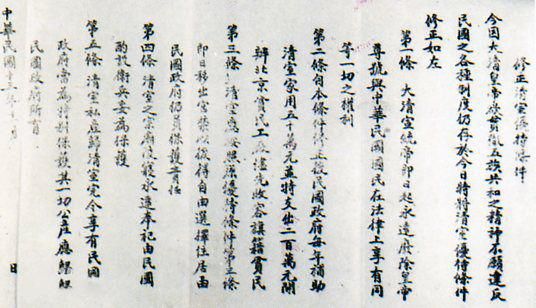 修正清室優待條件
今因大清皇帝欲貫徹五族共和之精神不願違反
民國之各種制度仍存於今日特將清室優待條件
修正如左
第一條 大清宣統帝即日起永遠廢除皇帝
尊號與中華民國國民在法律上享有同
等一切之權利
第二條自本條件修正後民國政府每年補助
清室家用五十萬元並特支出二百萬元開
辦北京貧民工廠儘先收容旗籍貧民
第三條 清室應按照原優待條件第三條
即日移出宮禁以後得自由選擇住居由
民國政府仍負保護責任
第四條 清室之宗廟陵寢永遠奉祀由民國
酌設衛兵妥為保護
第五條 清室私產歸清室完全享有民國
政府當為特別保護其一切公產應歸
民國政府所有
中華民國十三年十一月 日